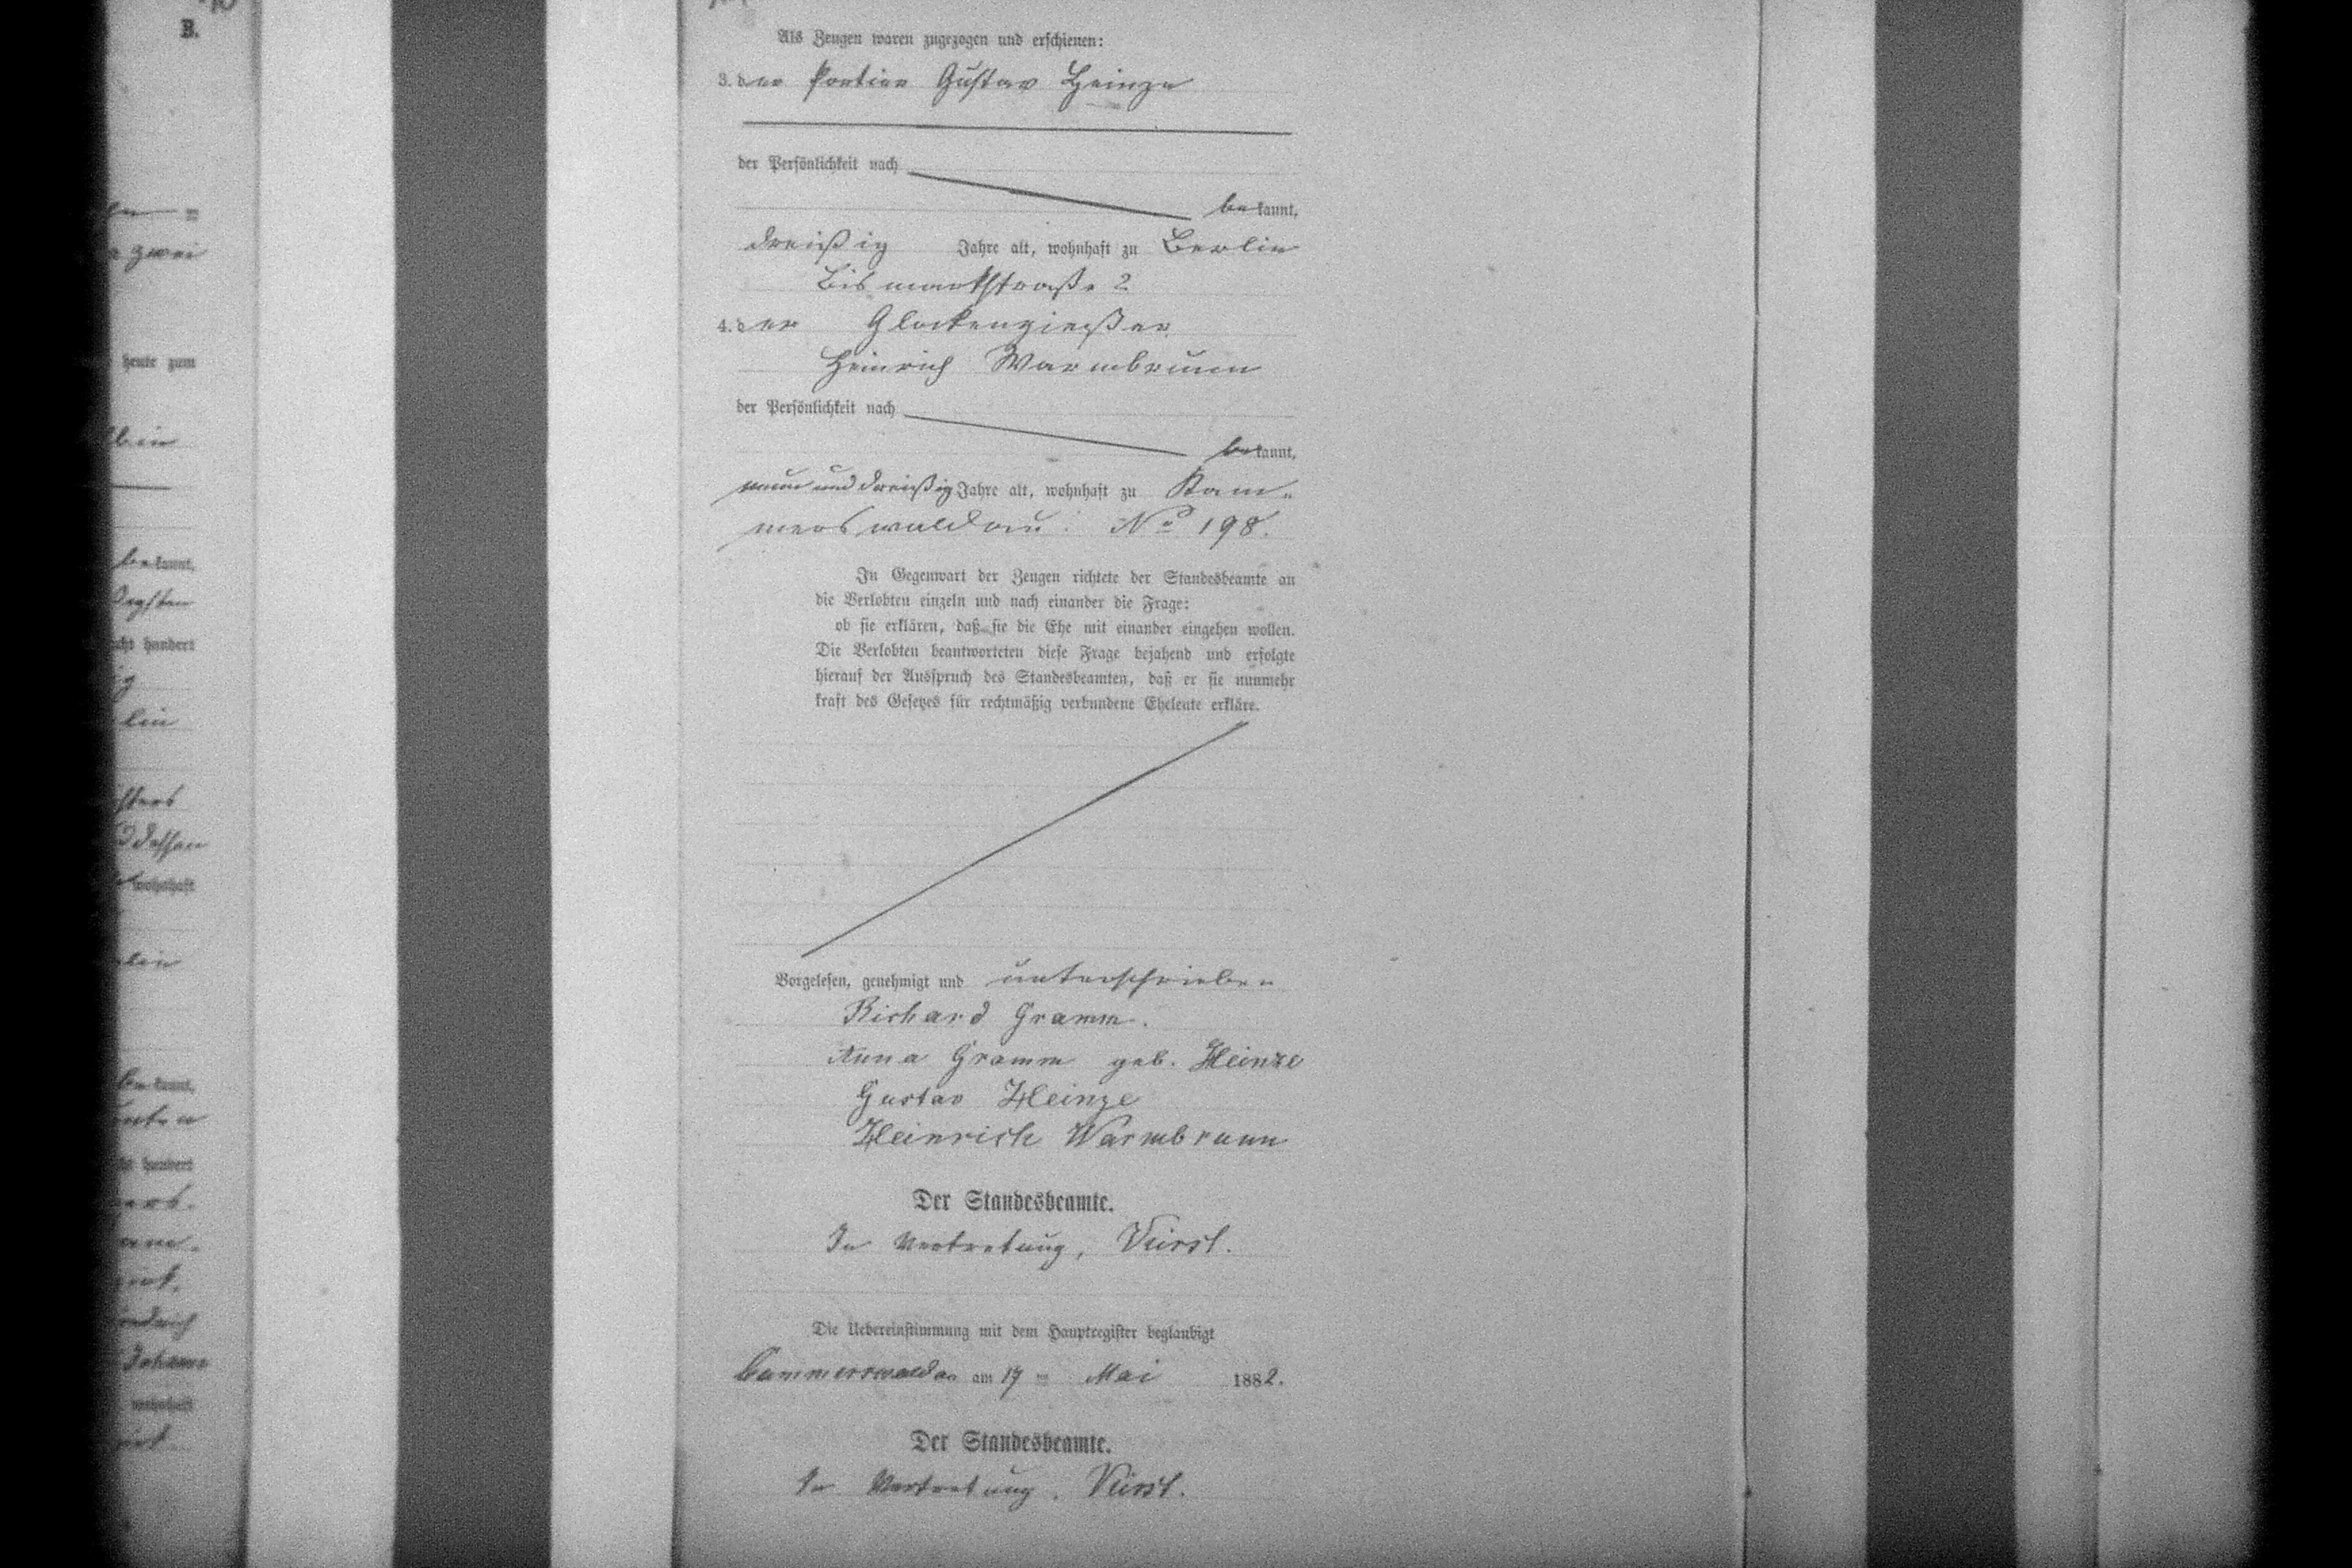 B.
zwei
heute zum
bekannt,
acht hundert
lin
dessen
wohnhaft
bekannt,
hundert
Johann
wohnhaft
Als Zeugen waren zugezogen und erschienen:
3. der Portier Gustav Heinze
der Persönlichkeit nach
bekannt,
dreißig Jahre alt, wohnhaft zu Berlin
Bismarkstraße 2
4. der Glockengießer
Heinrich Warmbrunn
der Persönlichkeit nach
bekannt,
neun und dreißig Jahre alt, wohnhaft zu Kam-
merswaldau. No 198.
In Gegenwart der Zeugen richtete der Standesbeamte an
die Verlobten einzeln und nach einander die Frage:
ob sie erklären, daß sie die Ehe mit einander eingehen wollen.
Die Verlobten beantworteten diese Frage bejahend und erfolgte
hierauf der Ausspruch des Standesbeamten, daß er sie nunmehr
kraft des Gesetzes für rechtmäßig verbundene Eheleute erkläre.
Vorgelesen, genehmigt und unterschrieben
Richard Gramm.
Anna Gramm geb. Heinze
Gustav Heinze
Heinrich Warmbrunn
Der Standesbeamte.
In Vertretung,
Die Uebereinstimmung mit dem Hauptregister beglaubigt
Cammerswaldau am Mai 1882.
Der Standesbeamte.
In Vertretung.